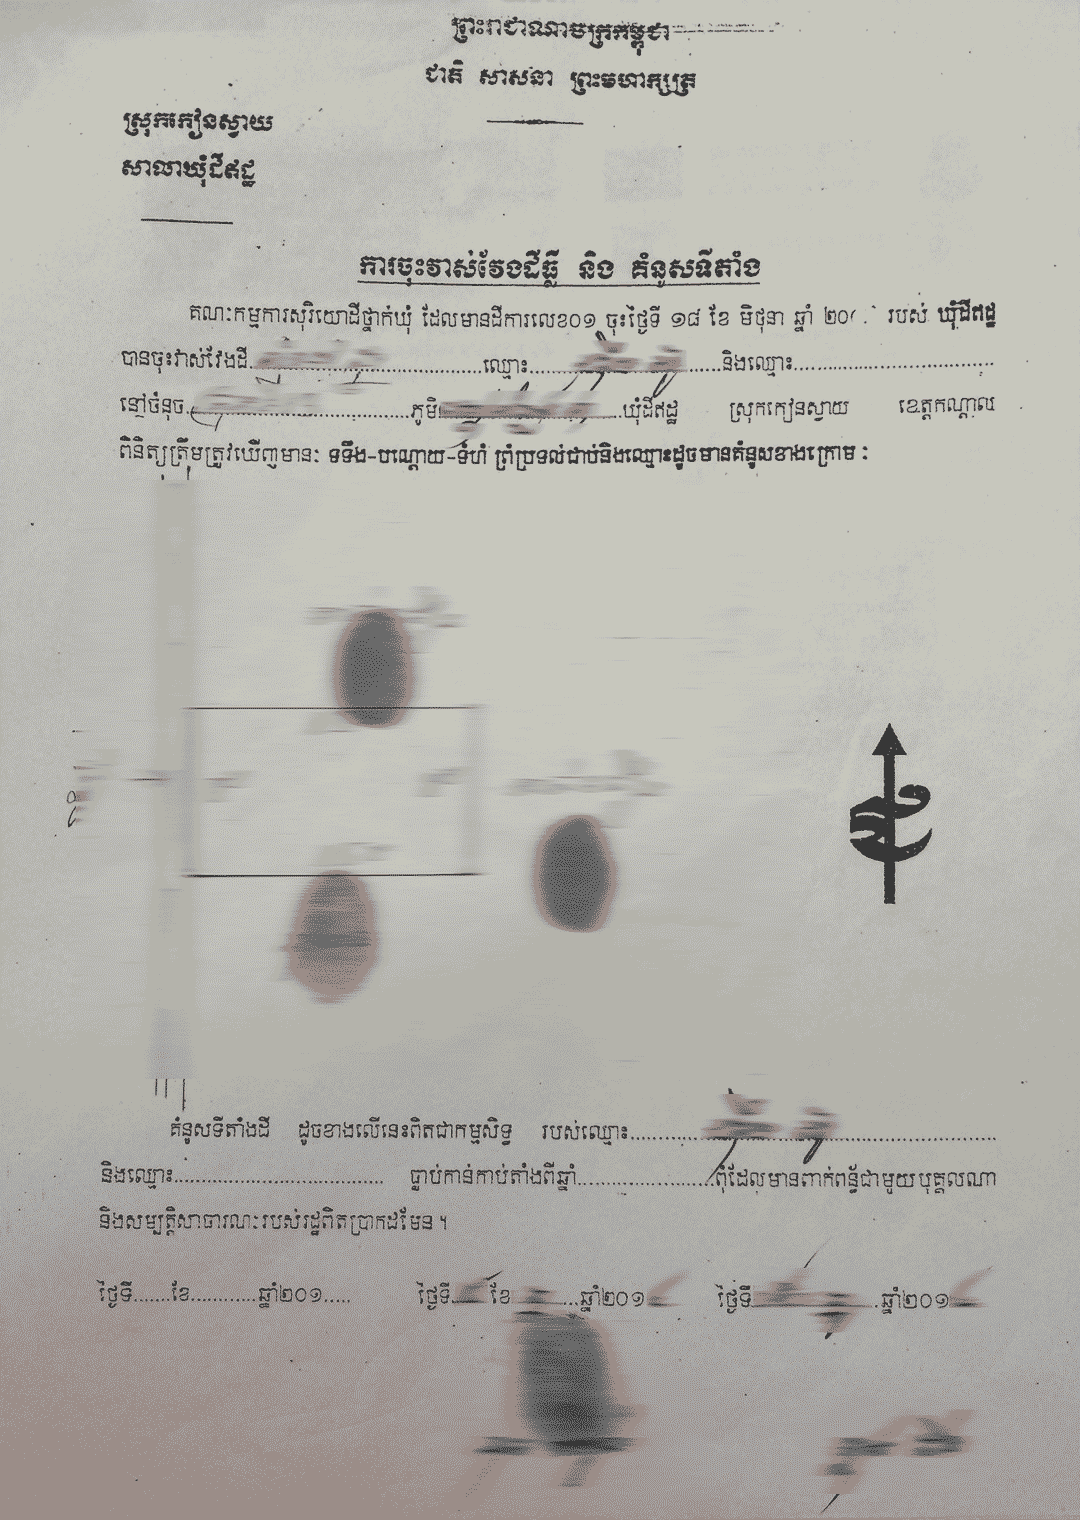 ព្រះរាជាណាចក្រកម្ពុជា
ជាតិ សាសនា ព្រះមហាក្សត្រ
ស្រុកកៀនស្វាយ
សាលាឃុំដីឥដ្ឋ
ការចុះវាស់វែងដីធ្លី និង គំនូសទីតាំង
គណៈកម្មការសុរិយោដីថ្នាក់ឃុំ ដែលមានដីការលេខ០១ ចុះថ្ងៃទី ១៨ ខែ មិថុនា ឆ្នាំ របស់ ឃុំដីឥដ្ឋ
បានចុះវាស់វែងដី..............................ឈ្មោះ..............................និងឈ្មោះ..............................
នៅចំនុច..............................ភូមិ..............................ឃុំដីឥដ្ឋ ស្រុកកៀនស្វាយ ខេត្តកណ្តាល
ពិនិត្យត្រឹមត្រូវឃើញមានៈ ទទឹង-បណ្តោយ-ទំហំ ព្រំប្រទល់ជាប់និងឈ្មោះដូចមានគំនូសខាងក្រោម :
គំនូសទីតាំងដី ដូចខាងលើនេះពិតជាកម្មសិទ្ធ របស់ឈ្មោះ..............................
និងឈ្មោះ.............................. ធ្លាប់កាន់កាប់តាំងពីឆ្នាំ....................ពុំដែលមានពាក់ពន្ធ័ជាមួយបុគ្គលណា
និងសម្បត្តិសាធារណៈរបស់រដ្ឋពិតប្រាកដមែន ។
ថ្ងៃទី......ខែ...........ឆ្នាំ២០១..... ថ្ងៃទី......ខែ...........ឆ្នាំ២០១ ថ្ងៃទី....................ឆ្នាំ២០១